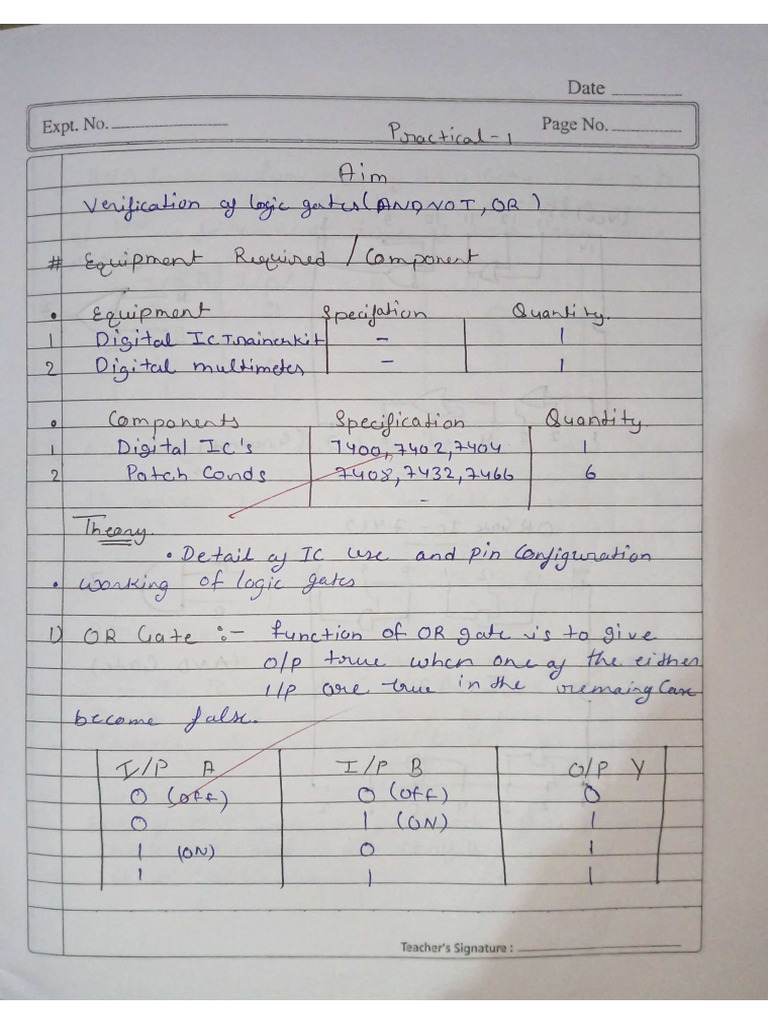 Date
Expt. No.
Practical-1
Page No.
Aim
Verification of logic gates (AND, NOT, OR)
# Equipment Required / Component
• Equipment Specifation Quantity.
1 Digital IC Trainerkit - 1
2 Digital multimeter - 1
• Components Specification Quantity.
1 Digital IC's 7400, 7402, 7404 1
2 Patch Cords 7408, 7432, 7466 6
-
Theory.
• Detail of IC use and pin configuration
• working of logic gates
1) OR Gate :- function of OR gate is to give
O/P true when one of the either
I/P are true in the remaing Case
become false.
I/P A I/P B O/P Y
0 (OFF) 0 (OFF) 0
0 1 (ON) 1
1 (ON) 0 1
1 1 1
Teacher's Signature :